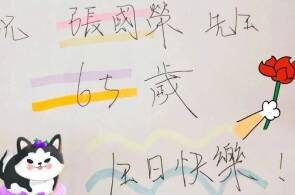 祝 張國榮 先生
65 歲
生日快樂！